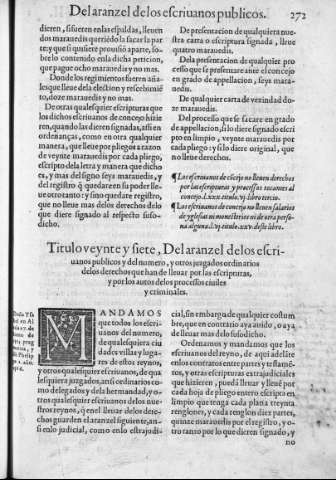 Del aranzel de los escriuanos publicos. 272
dieren, si fueren las espaldas, lleuen
dos marauedis queriédo la sacar la par
te: y que si quisiere prouisió aparte, so
bre lo contenido enla dicha peticion,
que pague ocho marauedis y no mas.
Donde los regimientos fueren aña
les que lleue dela election y rescebimié
to, doze marauedis y no mas.
De otras qualesquier escripturas que
los dichos escriuanos de concejo hizie
ren, quando las dieren signadas, assi en
ordenanças, como en otra qualquier
manera, que lleue por pliegos a razon
de veynte marauedis por cada pliego,
escripto dela letra y manera que dicho
es, y mas del signo seys marauedis, y
del registro q̃ quedare en su poder lle-
ue otro tanto: y sino quedare registro,
que no lleue mas delos derechos delo
que diere signado al respecto suso-
dicho.
De presentacion de qualquiera nue-
stra carta o escriptura signada, lleue
quatro marauedis.
Dela presentacion de qualquier pro
cesso que se presentare ante el concejo
en grado de appellacion, seys maraue-
dis.
De qualquier carta de vezindad do-
ze marauedis.
Del processo que se sacare en grado
de appellacion, si lo diere signado escri
pto en limpio, veynte marauedis por
cada pliego: y si lo diere original, que
no lleue derechos.
¶ Los escriuanos de cōcejo no lleuen derechos
por las escripturas y processos tocantes al
concejo.
¶ Los escriuanos de concejo no lleuen salarios
de yglesias ni monesterios ni de otra perso-
na alguna.
Titulo veynte y siete, Del aranzel delos escri-
uanos publicos y del numero, y otros juzgados ordinarios
delos derechos que han de lleuar por las escripturas,
y por los autos delos processos ciuiles
y criminales.
MANDAMOS
que todos los escri-
uanos del numero,
de qualesquiera ciu
dades villas y luga-
res de estos reynos,
y otros qualesquier escriuanos, de qua
lesquiera juzgados, ansi ordinarios co-
mo delegados y dela hermandad, y o-
tros qualesquier escriuanos delos nue-
stros reynos, q̃ enel lleuar delos dere-
chos guarden el aranzel siguiente, an-
si enlo judicial, como enlo estrajudi-
cial, sin embargo de qualquier costum
bre, que en contrario aya auido, o aya
de lleuar mas delo susodicho.
Ordenamos y mandamos que los
escriuanos del reyno, de aqui adelāte
enlos contratos entre partes y testamē-
tos, y otras escripturas extrajudiciales
que hizieren, pueda lleuar y lleue por
cada hoja de pliego entero escripto en
limpio que tenga cada plana treynta
renglones, y cada renglon diez partes,
quinze marauedis por el registro, y o-
tro tanto por lo que dieren signado, y
no